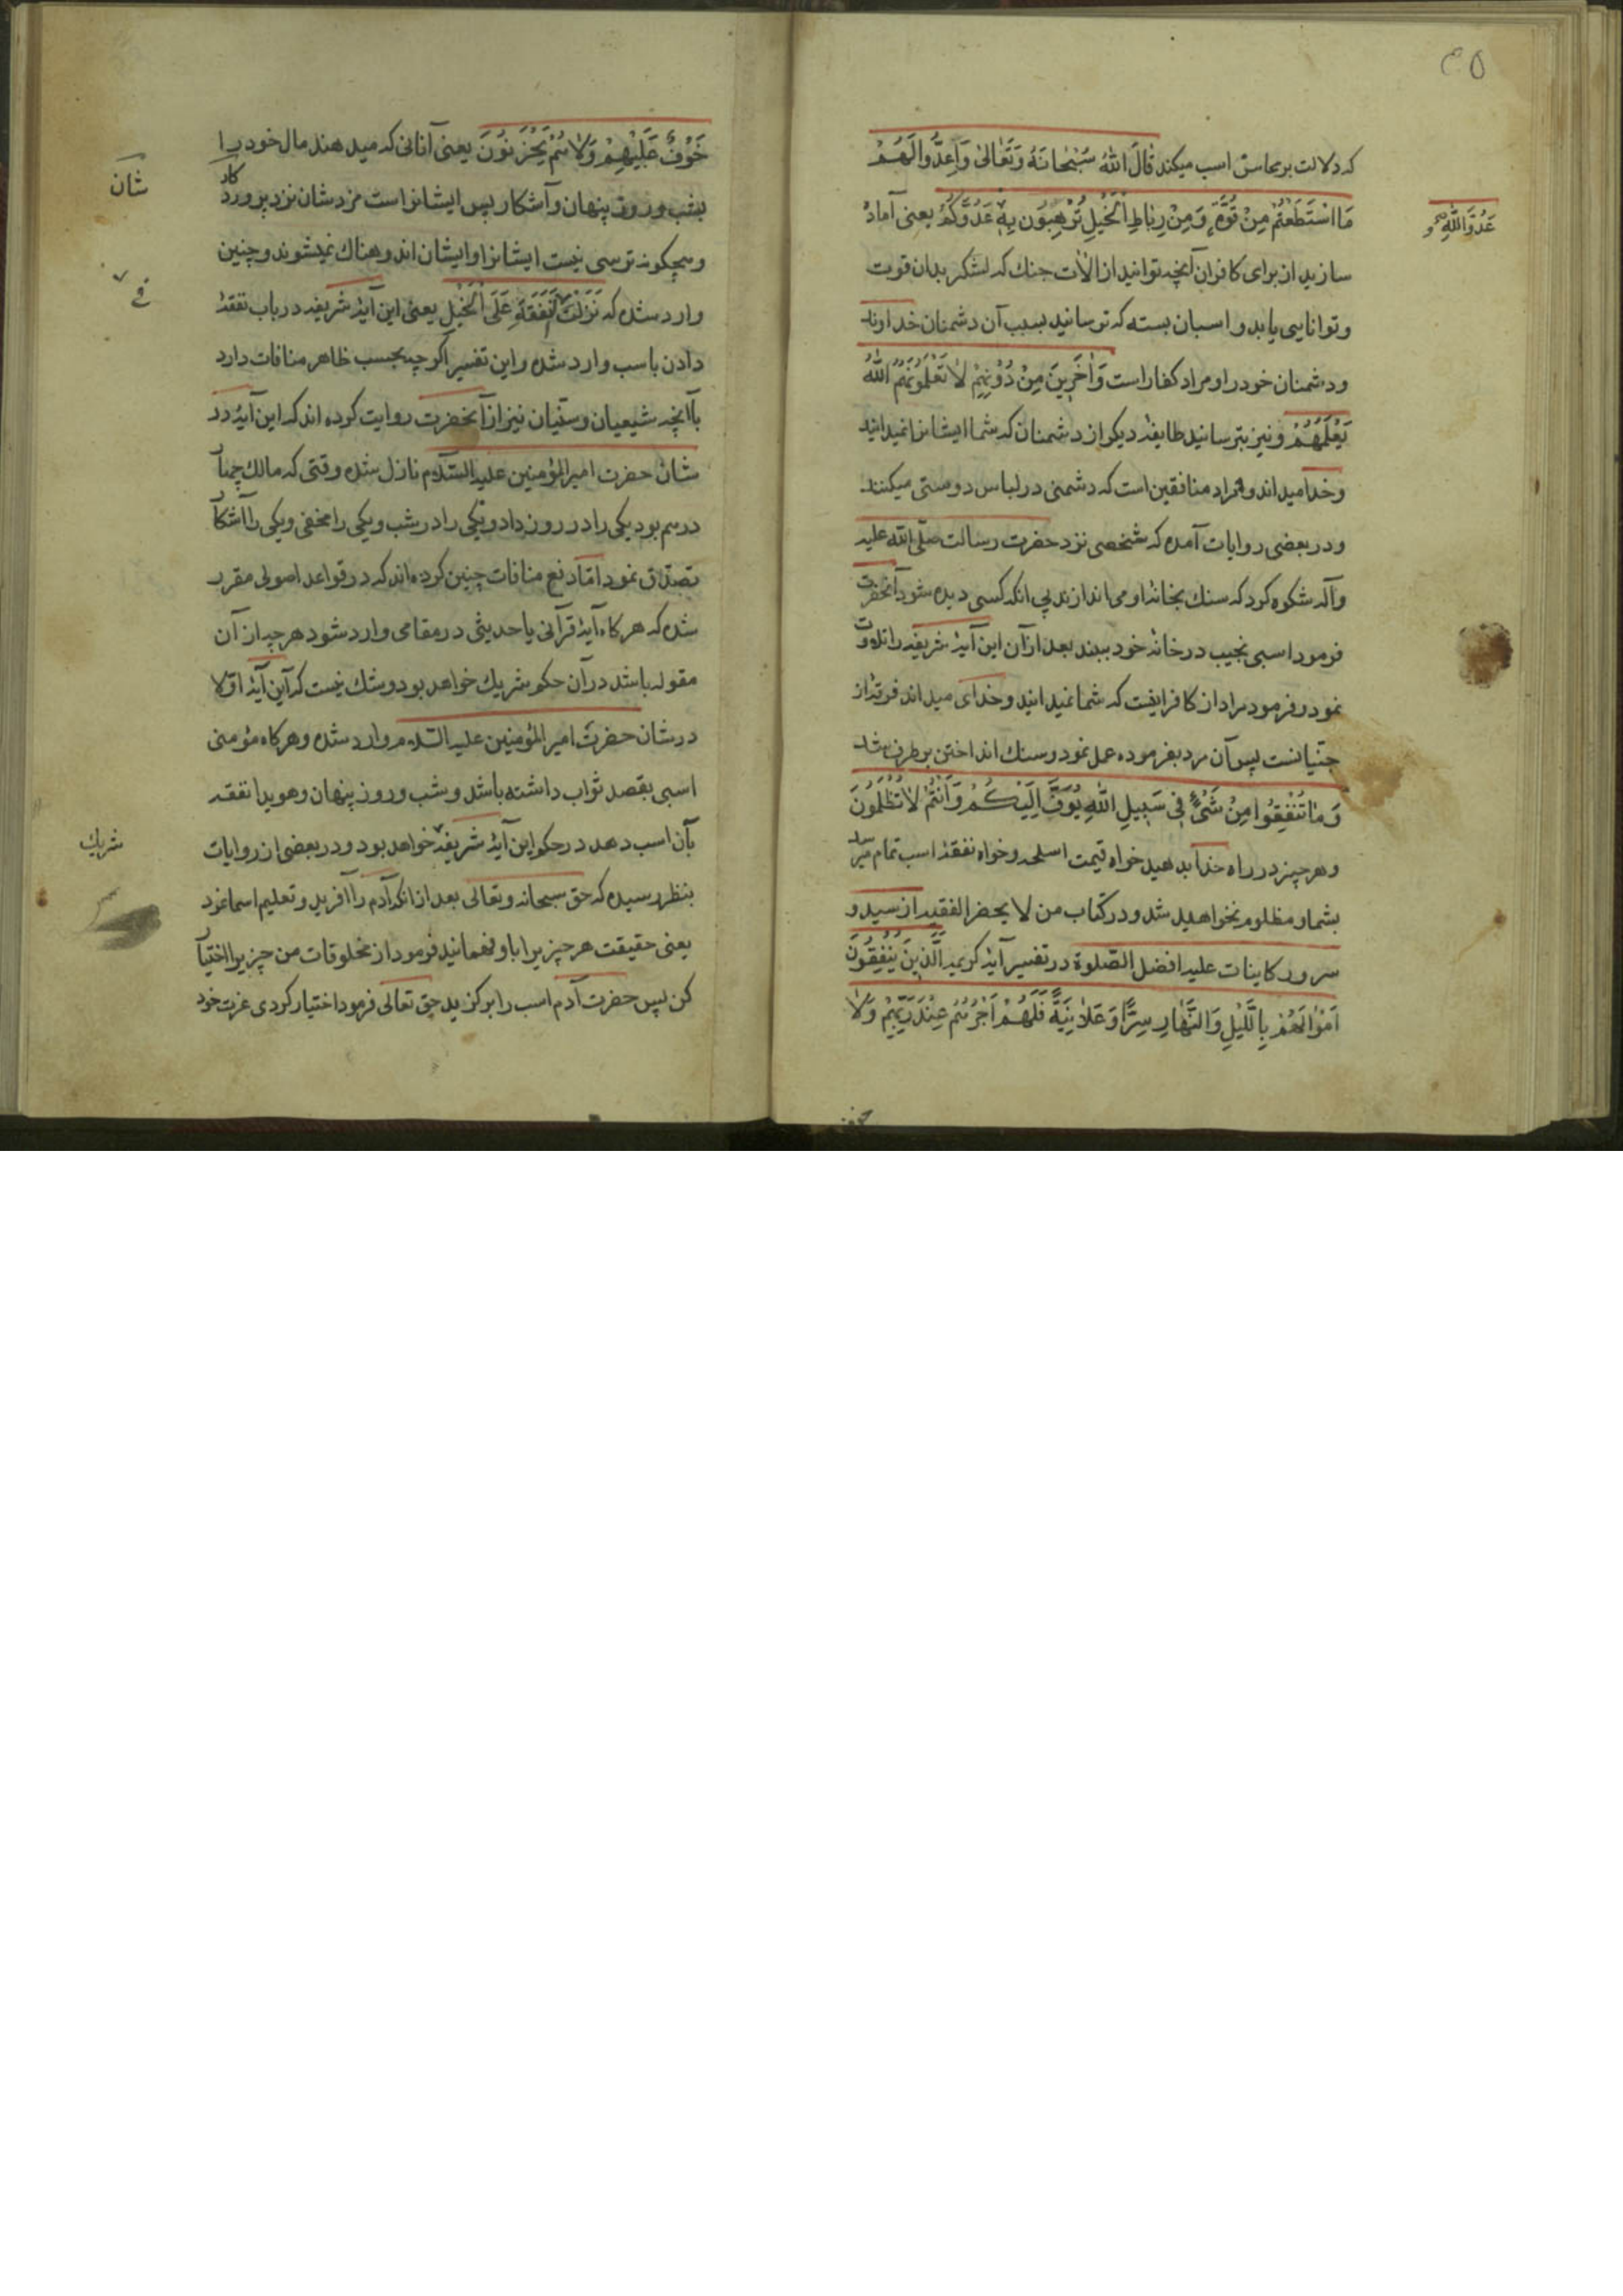 ۳۵
که دلالت بر محاسن اسب میکند قَالَ اللهُ سُبْحَانَهُ وَتَعَالیٰ وَاَعِدُّوا لَهُمْ
مَا اسْتَطَعْتُمْ مِنْ قُوَّةٍ وَمِنْ رِبَاطِ الْخَیْلِ تُرْهِبُونَ بِهِ عَدُوَّکُمْ یعنی آماده
عَدُوَّ اللّٰهِ وَ
سازید از برای کافران آنچه توانید از الات جنك که لشکر بدان قوت
و توانایی یابد و اسبان بسته که ترسانید بسبب آن دشمنان خداوند
و دشمنان خود را و مراد کفار است وَاٰخَرِینَ مِنْ دُونِهِمْ لَا تَعْلَمُونَهُمُ اللهُ
یَعْلَمُهُمْ و نیز بترسانید طایفهٔ دیکر از دشمنان که شما ایشانرا نمیدانید
و خدا میداند و مراد منافقین است که دشمنی در لباس دوستی میکنند
و در بعضی روایات آمده که شخصی نزد حضرت رسالت صلّی الله علیه
و آله شکوه کرد که سنك بخانهٔ او می اندازند بی انکه کسی دیده شود آنحضرت
فرمود اسبی نجیب در خانهٔ خود ببند بعد از آن این آیهٔ شریفه را تلاوت
نمود و فرمود مراد از کافرانیست که شما نمیدانید و خدای میداند فرقهٔ از
جنّیانست پس آن مرد بفرموده عمل نمود و سنك انداختن برطرف شد
وَمَا تُنْفِقُوا مِنْ شَیْءٍ فِی سَبِیلِ اللهِ یُوَفَّ اِلَیْکُمْ وَاَنْتُمْ لَا تُظْلَمُونَ
و هر چیز در راه خدا بدهید خواه قیمت اسلحه و خواه نفقهٔ اسب تمام میرسد
بشما و مظلوم نخواهید شد و در کتاب من لا یحضر الفقیه از سید و
سرور کاینات علیه افضل الصّلوة در تفسیر آیهٔ کریمه الَّذِینَ یُنْفِقُونَ
اَمْوَالَهُمْ بِالَّلیْلِ وَالنَّهَارِ سِرًّا وَعَلَانِیَةً فَلَهُمْ اَجْرُهُمْ عِنْدَ رَبِّهِمْ وَلَا
خوف
خَوْفٌ عَلَیْهِمْ وَلَا هُمْ یَحْزَنُونَ یعنی آنانی که میدهند مال خود را
بشب و روز پنهان و آشکار پس ایشانراست مزدشان نزد پروردکار
شان
و هیچکونه ترسی نیست ایشانرا و ایشان اندوهناك نمیشوند و چنین
وارد شده که نَزَلَتْ النَّفَقَةِ عَلَی الْخَیْلِ یعنی این آیهٔ شریفه در باب نفقهٔ
فی
دادن باسب وارد شده و این تفسیر اکرچه بحسب ظاهر منافات دارد
بآانچه شیعیان و سنّیان نیز از آنحضرت روایت کرده اند که این آیهٔ در
شان حضرت امیر المؤمنین علیه السّلام نازل شده وقتی که مالك چهار
درهم بود یکی را در روز داد و یکی را در شب و یکی را مخفی و یکی را آشکار
تصدّق نمود امّا دفع منافات چنین کرده اند که در قواعد اصولی مقرر
شده که هر کاه آیهٔ قرآنی یا حدیثی در مقامی وارد شود هر چه از آن
مقوله باشد در آن حکم شریك خواهد بود و شك نیست که این آیهٔ اوّلا
در شان حضرت امیر المؤمنین علیه السّلام وارد شده و هر کاه مؤمنی
اسبی بقصد ثواب داشته باشد و شب و روز پنهان و هویدا نفقه
بآن اسب دهد در حکم این آیهٔ شریفه خواهد بود و در بعضی از روایات
شریك
بنظر رسیده که حق سبحانه و تعالی بعد از انکه آدم را آفرید و تعلیم اسما نمود
یعنی حقیقت هر چیز یرا باو فهمانید فرمود از مخلوقات من چیزیرا اختیار
کن پس حضرت آدم اسب را برکزید حق تعالی فرمود اختیار کردی عزت خود